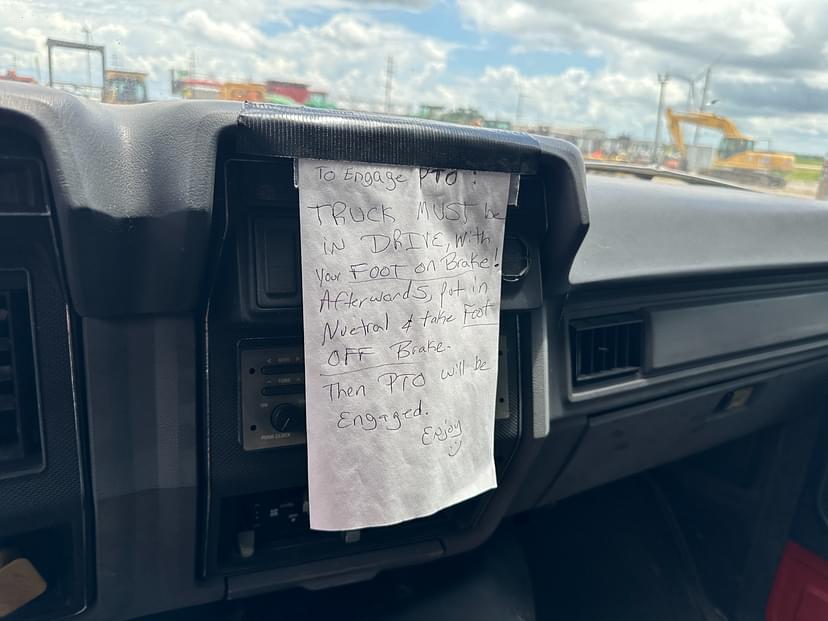 To Engage PTO :
TRUCK MUST be
in DRIVE, with
your FOOT on Brake!
Afterwards, put in
Nuetral & take Foot
OFF Brake.
Then PTO will be
Engaged.
Enjoy
:)